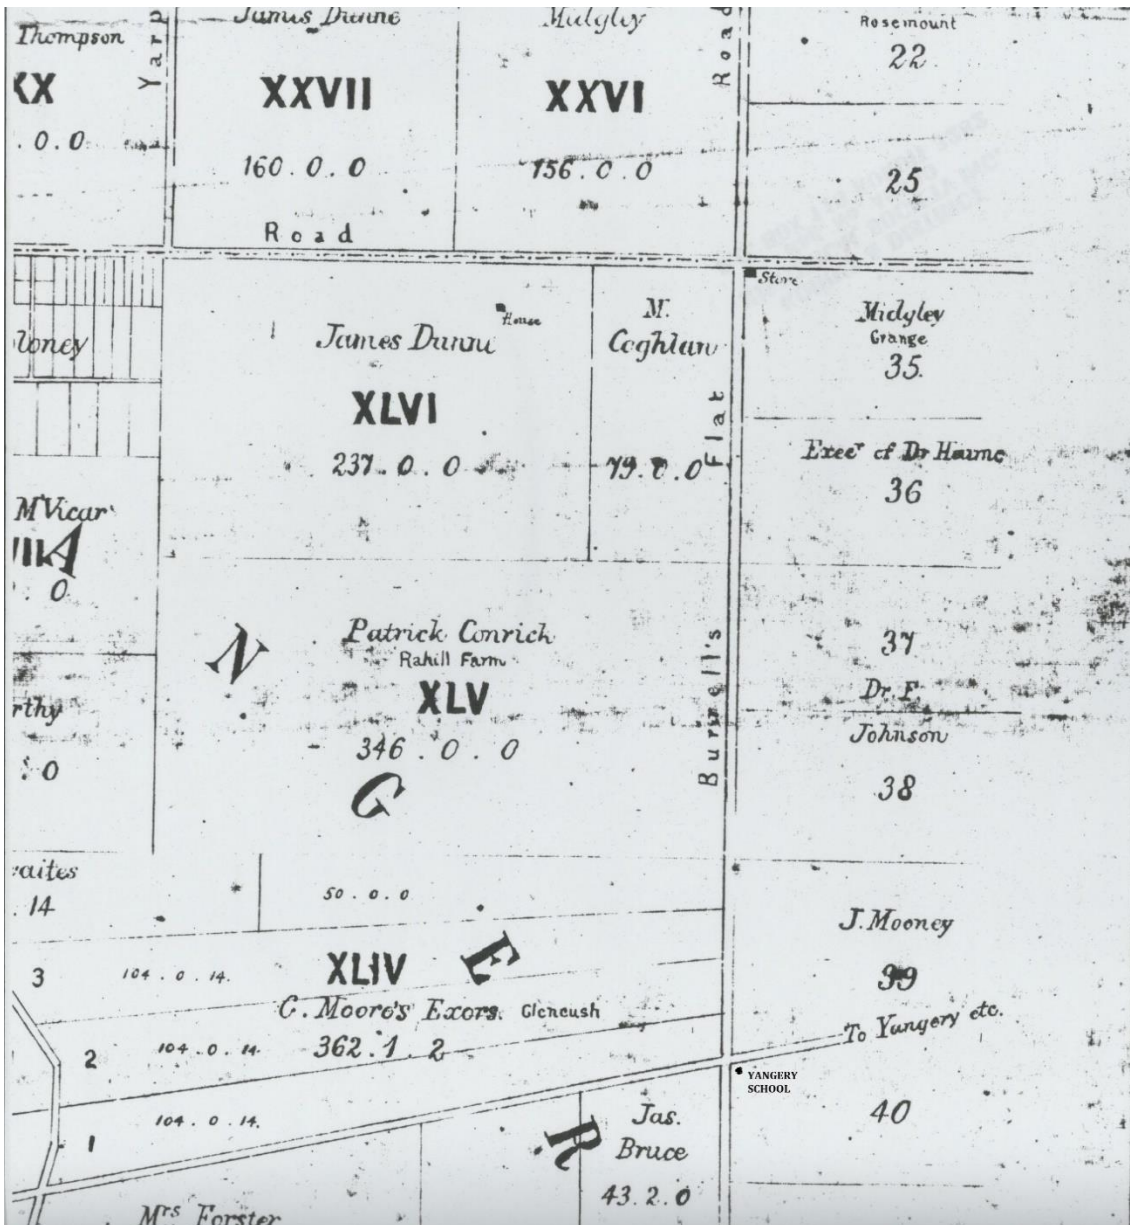 Thompson
XX
. 0 . 0
Yarp
James Dunne
XXVII
160 . 0 . 0
Road
Midgley
XXVI
156 . 0 . 0
Road
Rosemount
22
25
Store
loney
James Dunne
House
XLVI
237 . 0 . 0
M.
Coghlan
79 . 0 . 0
Flat
Midgley
Grange
35.
Exec^r of Dr Haume
36
McVicar
A
. 0
N
Patrick Conrich
Rahill Farm
XLV
346 . 0 . 0
G
Burnell's
37
Dr. F.
Johnson
38
rthy
. 0
raites
. 14
50 . 0 . 0
3
104 . 0 . 14.
XLIV
E
C. Moore's Exors. Glencush
362 . 1 . 2
2
104 . 0 . 14.
1
104 . 0 . 14.
J. Mooney
39
To Yangery etc.
YANGERY
SCHOOL
40
R
Jas.
Bruce
43 . 2 . 0
Mrs Forster